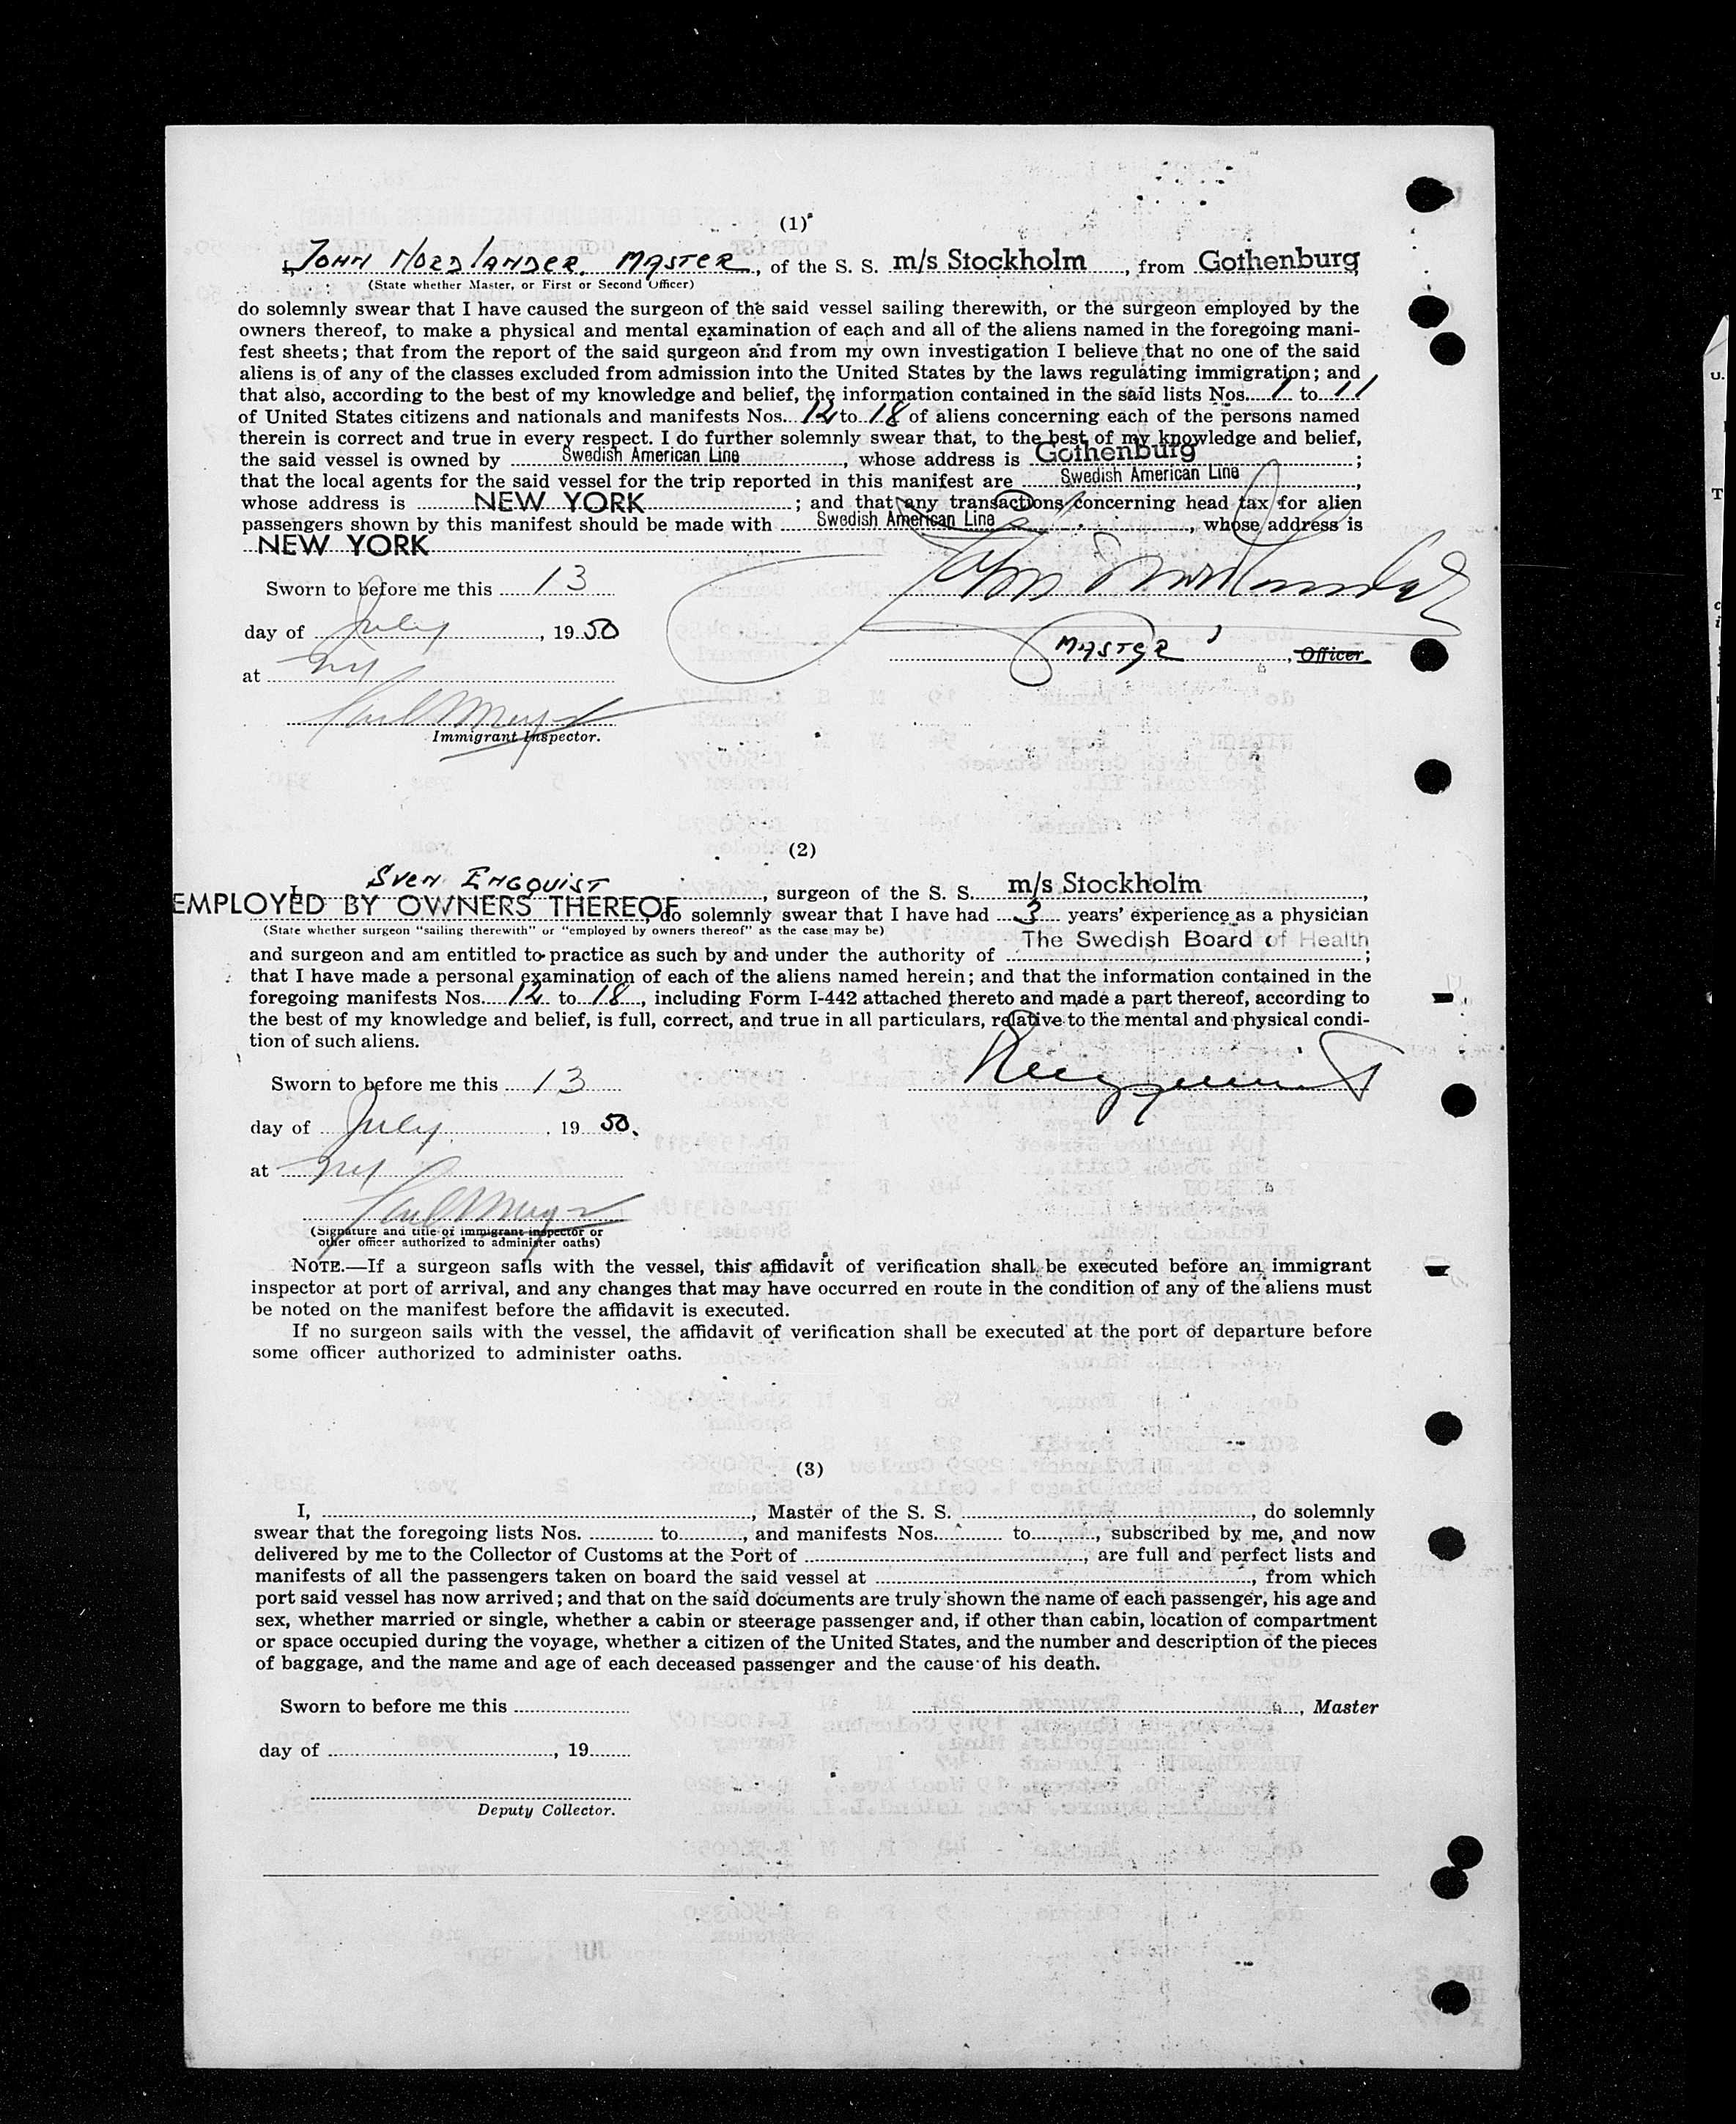 (1)
I, JOHN NORDLANDER, MASTER, of the S. S. m/s Stockholm, from Gothenburg
(State whether Master, or First or Second Officer)
do solemnly swear that I have caused the surgeon of the said vessel sailing therewith, or the surgeon employed by the
owners thereof, to make a physical and mental examination of each and all of the aliens named in the foregoing mani-
fest sheets; that from the report of the said surgeon and from my own investigation I believe that no one of the said
aliens is of any of the classes excluded from admission into the United States by the laws regulating immigration; and
that also, according to the best of my knowledge and belief, the information contained in the said lists Nos. 1 to 11
of United States citizens and nationals and manifests Nos. 12 to 18 of aliens concerning each of the persons named
therein is correct and true in every respect. I do further solemnly swear that, to the best of my knowledge and belief,
the said vessel is owned by Swedish American Line, whose address is Gothenburg;
that the local agents for the said vessel for the trip reported in this manifest are Swedish American Line,
whose address is NEW YORK; and that any transactions concerning head tax for alien
passengers shown by this manifest should be made with Swedish American Line, whose address is
NEW YORK
John Nordlander
Sworn to before me this 13
day of July, 19 50
MASTER, Officer
at NY
Immigrant Inspector.
(2)
I, SVEN ENGQUIST, surgeon of the S. S. m/s Stockholm,
EMPLOYED BY OWNERS THEREOF, do solemnly swear that I have had 3 years' experience as a physician
(State whether surgeon "sailing therewith" or "employed by owners thereof" as the case may be)
and surgeon and am entitled to practice as such by and under the authority of The Swedish Board of Health;
that I have made a personal examination of each of the aliens named herein; and that the information contained in the
foregoing manifests Nos. 12 to 18, including Form I-442 attached thereto and made a part thereof, according to
the best of my knowledge and belief, is full, correct, and true in all particulars, relative to the mental and physical condi-
tion of such aliens.
Sworn to before me this 13
day of July, 19 50.
at NY
(Signature and title of immigrant inspector or
other officer authorized to administer oaths)
NOTE.—If a surgeon sails with the vessel, this affidavit of verification shall be executed before an immigrant
inspector at port of arrival, and any changes that may have occurred en route in the condition of any of the aliens must
be noted on the manifest before the affidavit is executed.
If no surgeon sails with the vessel, the affidavit of verification shall be executed at the port of departure before
some officer authorized to administer oaths.
(3)
I, , Master of the S. S. , do solemnly
swear that the foregoing lists Nos. to , and manifests Nos. to , subscribed by me, and now
delivered by me to the Collector of Customs at the Port of , are full and perfect lists and
manifests of all the passengers taken on board the said vessel at , from which
port said vessel has now arrived; and that on the said documents are truly shown the name of each passenger, his age and
sex, whether married or single, whether a cabin or steerage passenger and, if other than cabin, location of compartment
or space occupied during the voyage, whether a citizen of the United States, and the number and description of the pieces
of baggage, and the name and age of each deceased passenger and the cause of his death.
Sworn to before me this
, Master
day of , 19
Deputy Collector.